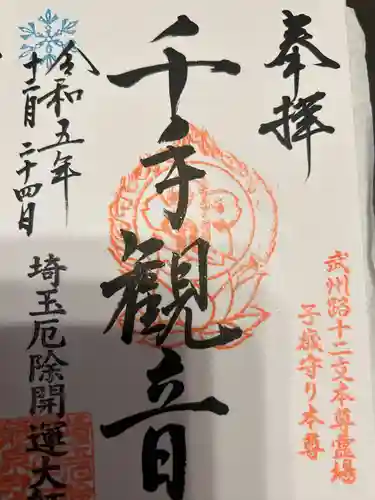 奉拝
武州路十二支本尊霊場
子根守り本尊
千手観音
令和五年
十二月二十四日
埼玉厄除開運大師